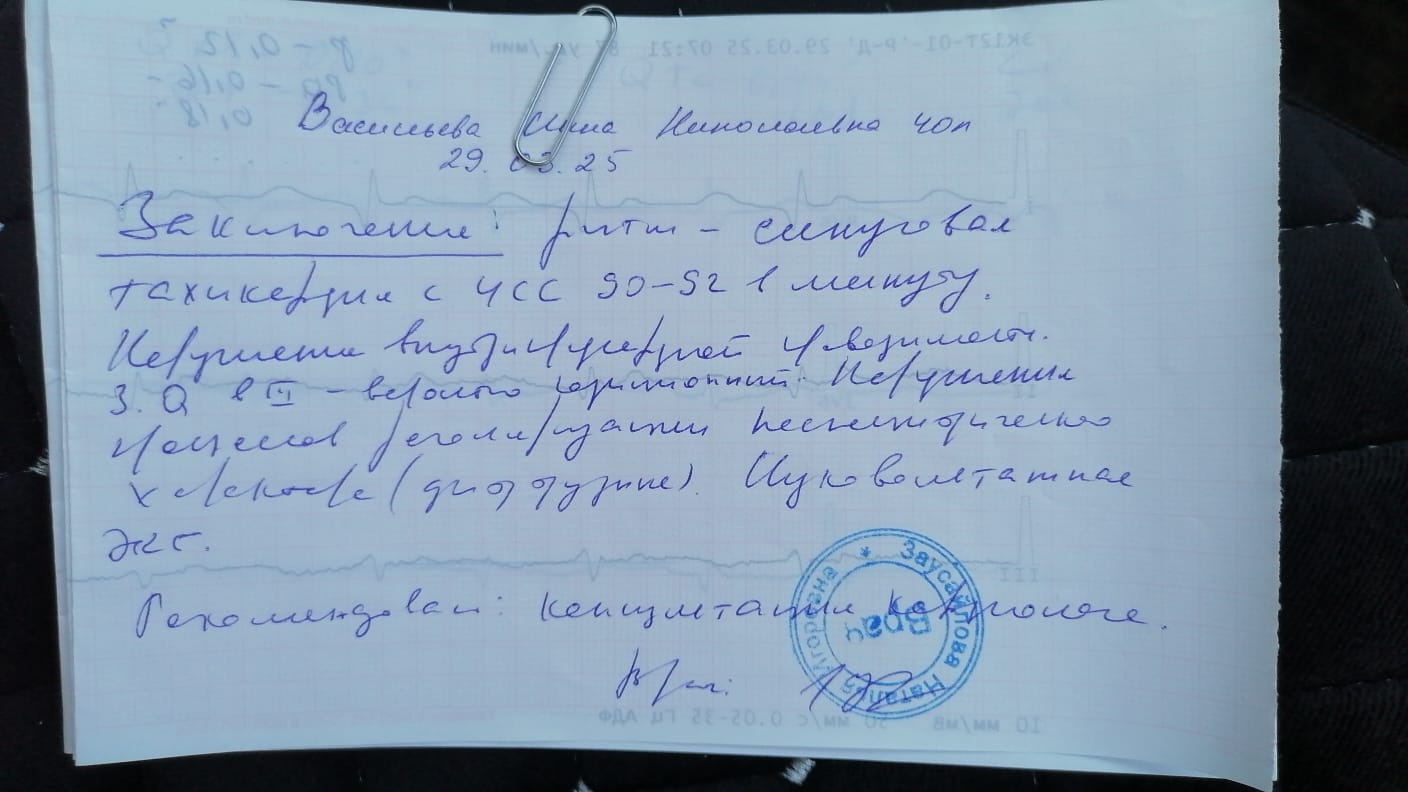 ЭК12Т-01-'Р-Д' 29.03.25 07:21 87 уд/мин
P - 0,12
PQ - 0,16
0,18
Васильева Николаевна ЧОП
29.03.25
Заключение: ритм - синусовая
тахикардия с ЧСС 90-92 в минуту.
Нарушение внутрипредсердной проводимости.
З. Q в III - вероятно позиционный. Нарушения
процессов реполяризации неспецифического
характера (диффузные). Низковольтажная
ЭКГ.
Рекомендован: консультация кардиолога.
Врач:
Заусайлова Наталья Игоревна * Врач
III
10 мм/мВ 50 мм/с 0.05-35 Гц АДФ